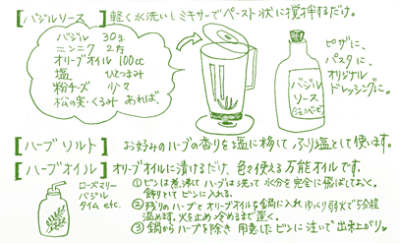 【バジルソース】軽く水洗いしミキサーでペースト状に攪拌するだけ。
バジル 30g
ニンニク 2片
オリーブオイル 100cc
塩 ひとつまみ
粉チーズ 少々
松の実・くるみ あれば、
バジル
ソース
ジェノベーゼ
ピザに、
パスタに、
オリジナル
ドレッシングに。
【ハーブソルト】お好みのハーブの香りを塩に移して、ふり塩として使います。
【ハーブオイル】オリーブオイルに漬けるだけ、色々使える万能オイルです。
ローズマリー
バジル
タイム etc.
①ビンは煮沸してハーブは洗って水分を完全に飛ばしておく。
飾りとしてビンに入れる。
②残りのハーブとオリーブオイルを鍋に入れゆっくり弱火で5分程
温めます。火を止め冷めるまで置く。
③鍋からハーブを除き用意したビンに注いで出来上がり♥